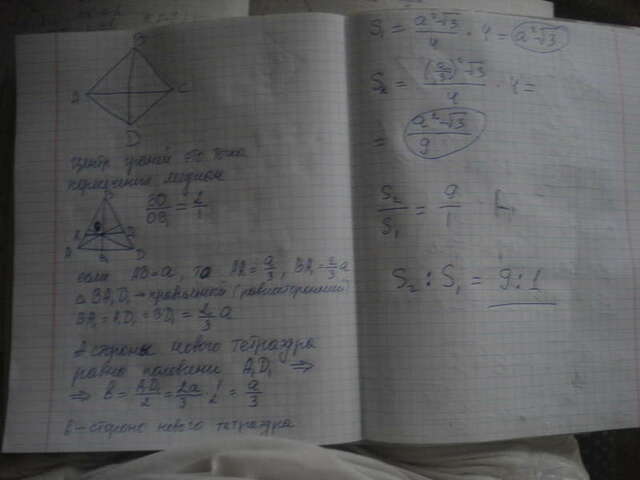 B
A
C
D
Центр граней это точка
пересечения медиан
BO/OB₁ = 2/1
если AB = a, то AA₁ = a/3, BA₁ = 2/3 a
△ BA₁D₁ – правильный (равносторонний)
BA₁ = A₁D₁ = BD₁ = 2/3 a
А стороны нового тетраэдра
равно половине A₁D₁ ⇒
⇒ b = A₁D₁/2 = 2a/3 · 1/2 = a/3
b – сторона нового тетраэдра
S₁ = a²√3/4 · 4 = a²√3
S₂ = (a/3)²√3/4 · 4 =
= a²√3/9
S₂/S₁ = 9/1
S₂ : S₁ = 9 : 1